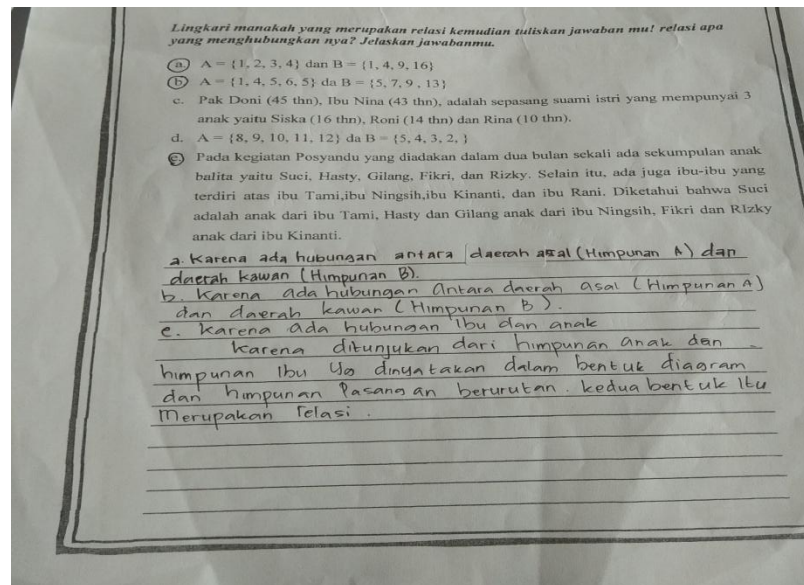 Lingkari manakah yang merupakan relasi kemudian tuliskan jawaban mu! relasi apa
yang menghubungkan nya? Jelaskan jawabanmu.
a. A = {1, 2, 3, 4} dan B = {1, 4, 9, 16}
b. A = {1, 4, 5, 6, 5} da B = {5, 7, 9 , 13}
c. Pak Doni (45 thn), Ibu Nina (43 thn), adalah sepasang suami istri yang mempunyai 3
anak yaitu Siska (16 thn), Roni (14 thn) dan Rina (10 thn).
d. A = {8, 9, 10, 11, 12} da B = {5, 4, 3, 2, }
e. Pada kegiatan Posyandu yang diadakan dalam dua bulan sekali ada sekumpulan anak
balita yaitu Suci, Hasty, Gilang, Fikri, dan Rizky. Selain itu, ada juga ibu-ibu yang
terdiri atas ibu Tami,ibu Ningsih,ibu Kinanti, dan ibu Rani. Diketahui bahwa Suci
adalah anak dari ibu Tami, Hasty dan Gilang anak dari ibu Ningsih, Fikri dan RIzky
anak dari ibu Kinanti.
a. Karena ada hubungan antara daerah asal (Himpunan A) dan
daerah kawan (Himpunan B).
b. Karena ada hubungan antara daerah asal (Himpunan A)
dan daerah kawan (Himpunan B).
e. Karena ada hubungan ibu dan anak
Karena ditunjukan dari himpunan anak dan
himpunan ibu yg dinyatakan dalam bentuk diagram
dan himpunan Pasangan berurutan. kedua bentuk itu
Merupakan relasi.